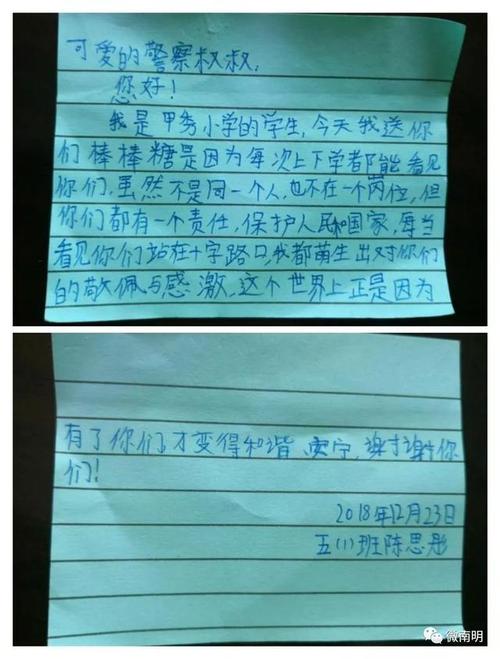 可爱的警察叔叔：
您好！
我是甲秀小学的学生，今天我送你
们棒棒糖是因为每次上下学都能看见
你们，虽然不是同一个人，也不在一个岗位，但
你们都有一个责任，保护人民和国家，每当
看见你们站在十字路口，我都萌生出对你们
的敬佩与感激，这个世界上正是因为
有了你们才变得和谐、安宁，谢谢你
们！
2018年12月23日
五（1）班陈思彤
微南明